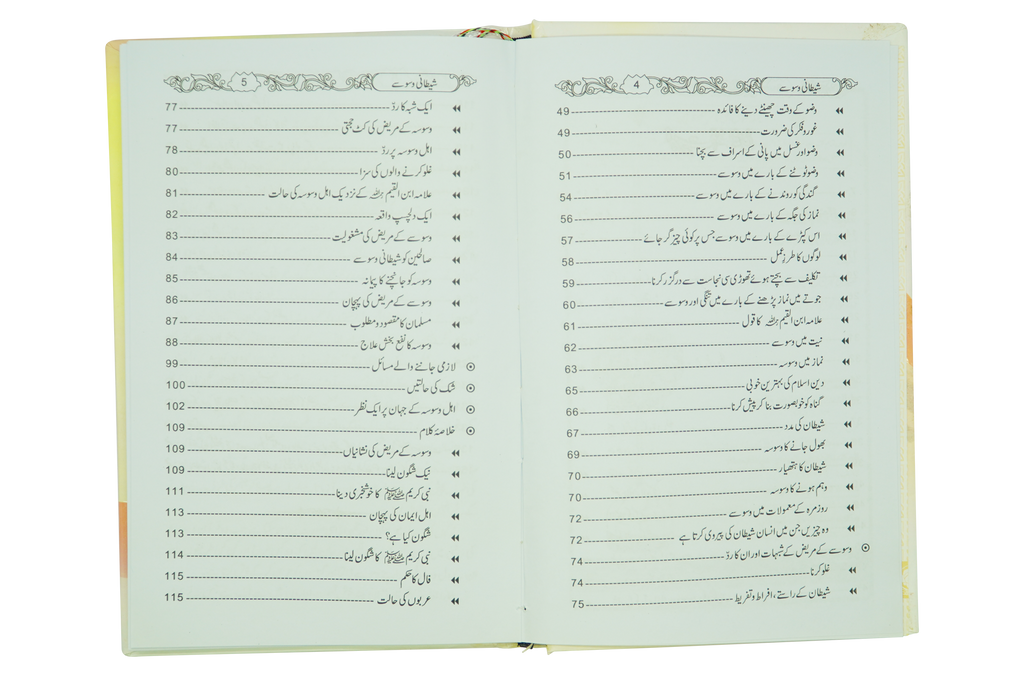 شیطانی وسوسے 4
وضو کے وقت چھینٹے دینے کا فائدہ 49
غور و فکر کی ضرورت 49
وضو اور غسل میں پانی کے اسراف سے بچنا 50
وضو ٹوٹنے کے بارے میں وسوسے 51
گندگی کو روندنے کے بارے میں وسوسے 54
نماز کی جگہ کے بارے میں وسوسے 56
اس کپڑے کے بارے میں وسوسے جس پر کوئی چیز گر جائے 57
لوگوں کا طرز عمل 58
تکلیف سے بچتے ہوئے تھوڑی سی نجاست سے درگزر کرنا 59
جوتے میں نماز پڑھنے کے بارے میں تنگی اور وسوسے 60
علامہ ابن القیم رحمہ اللہ کا قول 61
نیت میں وسوسے 62
نماز میں وسوسہ 63
دین اسلام کی بہترین خوبی 65
گناہ کو خوبصورت بنا کر پیش کرنا 66
شیطان کی مدد 67
بھول جانے کا وسوسہ 69
شیطان کا ہتھیار 70
وہم ہونے کا وسوسہ 70
روزمرہ کے معمولات میں وسوسے 72
وہ چیزیں جن میں انسان شیطان کی پیروی کرتا ہے 72
وسوسے کے مریض کے شبہات اور ان کا ردّ 74
غلو کرنا 74
شیطان کے راستے، افراط و تفریط 75
شیطانی وسوسے 5
ایک شبہ کا ردّ 77
وسوسہ کے مریض کی کٹ حجتی 77
اہل وسوسہ پر ردّ 78
غلو کرنے والوں کی سزا 80
علامہ ابن القیم رحمہ اللہ کے نزدیک اہل وسوسہ کی حالت 81
ایک دلچسپ واقعہ 82
وسوسے کے مریض کی مشغولیت 83
صالحین کو شیطانی وسوسے 84
وسوسہ کو جانچنے کا پیمانہ 85
وسوسے کے مریض کی پہچان 86
مسلمان کا مقصود و مطلوب 87
وسوسہ کا نفع بخش علاج 88
لازمی جاننے والے مسائل 99
شک کی حالتیں 100
اہل وسوسہ کے جہان پر ایک نظر 102
خلاصۂ کلام 109
وسوسہ کے مریض کی نشانیاں 109
نیک شگون لینا 109
نبی کریم ﷺ کا خوشخبری دینا 111
اہل ایمان کی پہچان 113
شگون کیا ہے؟ 113
نبی کریم ﷺ کا شگون لینا 114
فال کا حکم 115
عربوں کی حالت 115